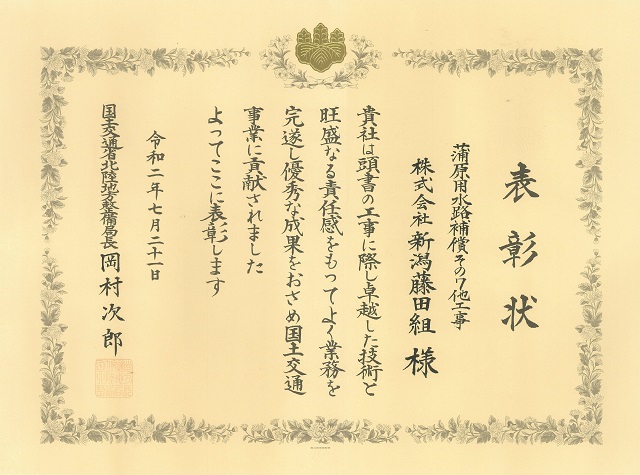 表彰状
蒲原用水路補償その7他工事
株式会社 新潟藤田組 様
貴社は頭書の工事に際し卓越した技術と
旺盛なる責任感をもってよく業務を
完遂し優秀な成果をおさめ国土交通
事業に貢献されました
よってここに表彰します
令和二年七月二十一日
国土交通省北陸地方整備局長 岡村次郎